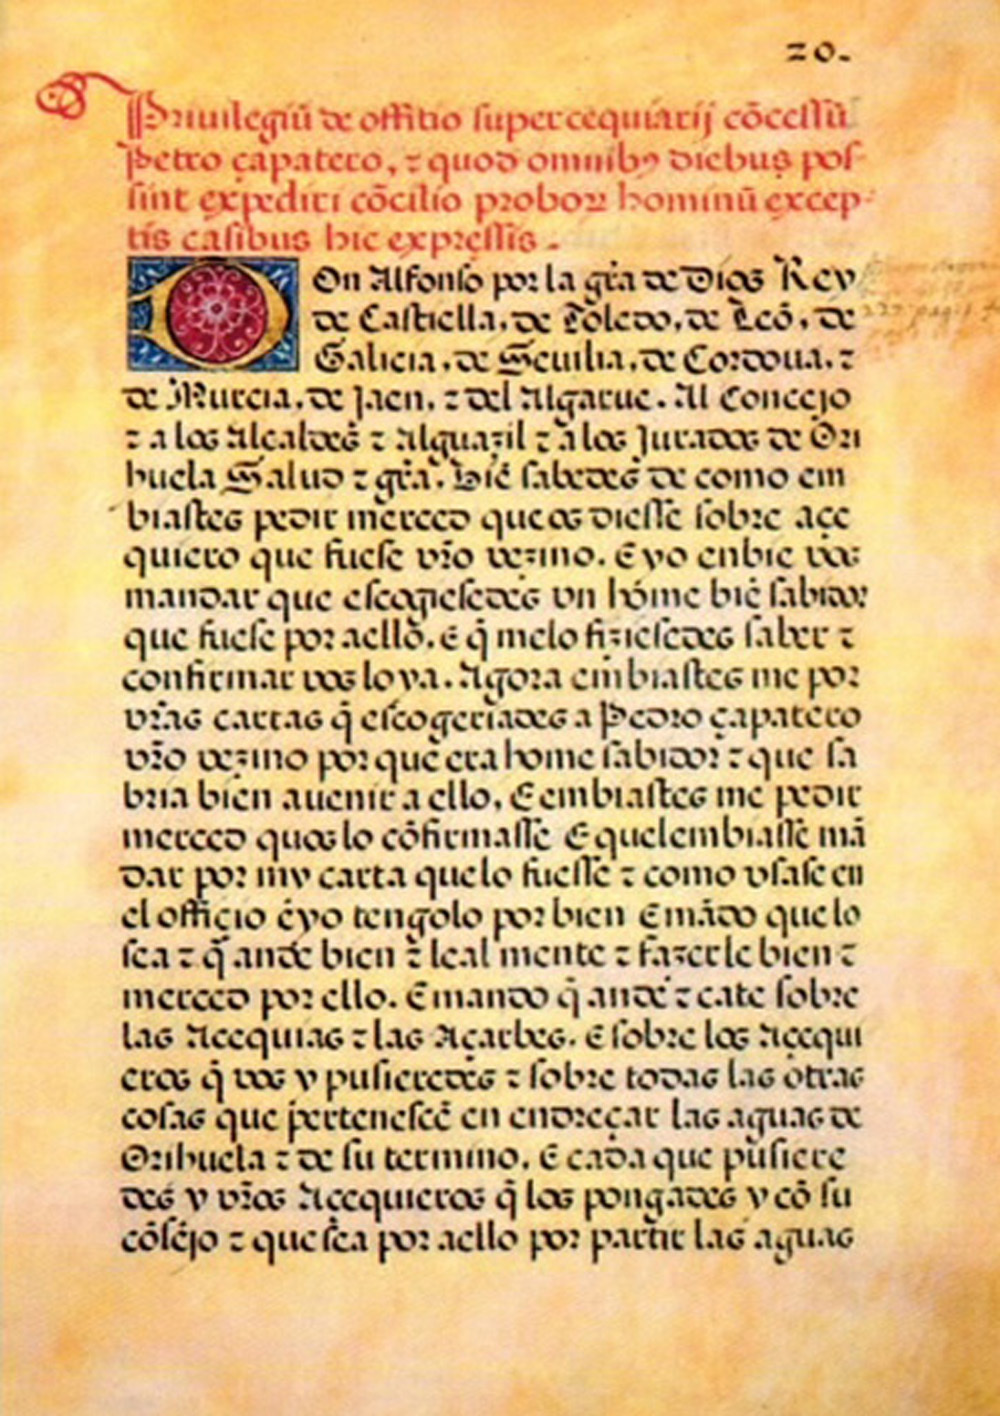 20.
Priuilegiũ de offitio supercequiarij cõcessũ
Petro çapatero, ⁊ quod omnibꝰ diebus pos-
sint expediri cõcilio proboꝝ hominũ excep-
tis casibus hic expressis.
DOn Alfonso por la gr̃a de Dios Rey
de Castiella, de Toledo, de Leõ, de
Galicia, de Seuilia, de Cordoua, ⁊
de Murcia, de Jaen, ⁊ del Algarue. Al Concejo
⁊ a los Alcaldes ⁊ Alguazil ⁊ a los Jurados de Ori
huela Salud ⁊ gr̃a. Biẽ sabedes de como em
biastes pedir merced que os diesse sobre açe
quiero que fuese vr̃o vezino. E yo enbie vos
mandar que escogiesedes vn home biẽ sabidor
que fuese por aello. E q̃ melo fiziesedes saber ⁊
confirmar vos lo ya. Agora embiastes me por
vr̃as cartas q̃ escogeriades a Pedro çapatero
vr̃o vezino por que era home sabidor ⁊ que sa
bria bien auenir a ello, E embiastes me pedir
merced quos lo cõfirmasse E quelembiasse mã
dar por my carta quelo fuesse ⁊ como vsase en
el offiçio éyo tengolo por bien E mãdo que lo
sea ⁊ q̃ ande bien ⁊ leal mente ⁊ fazerle bien ⁊
merced por ello. E mando q̃ ande ⁊ cate sobre
las Acequias ⁊ las Açarbes. E sobre los Açequi
eros q̃ vos y pusieredes ⁊ sobre todas las otras
cosas que pertenescẽ en endreçar las aguas de
Orihuela ⁊ de su termino. E cada que pusiere
des y vr̃os Acequieros q̃ los pongades y cõ su
cõsejo ⁊ que sea por aello por partir las aguas